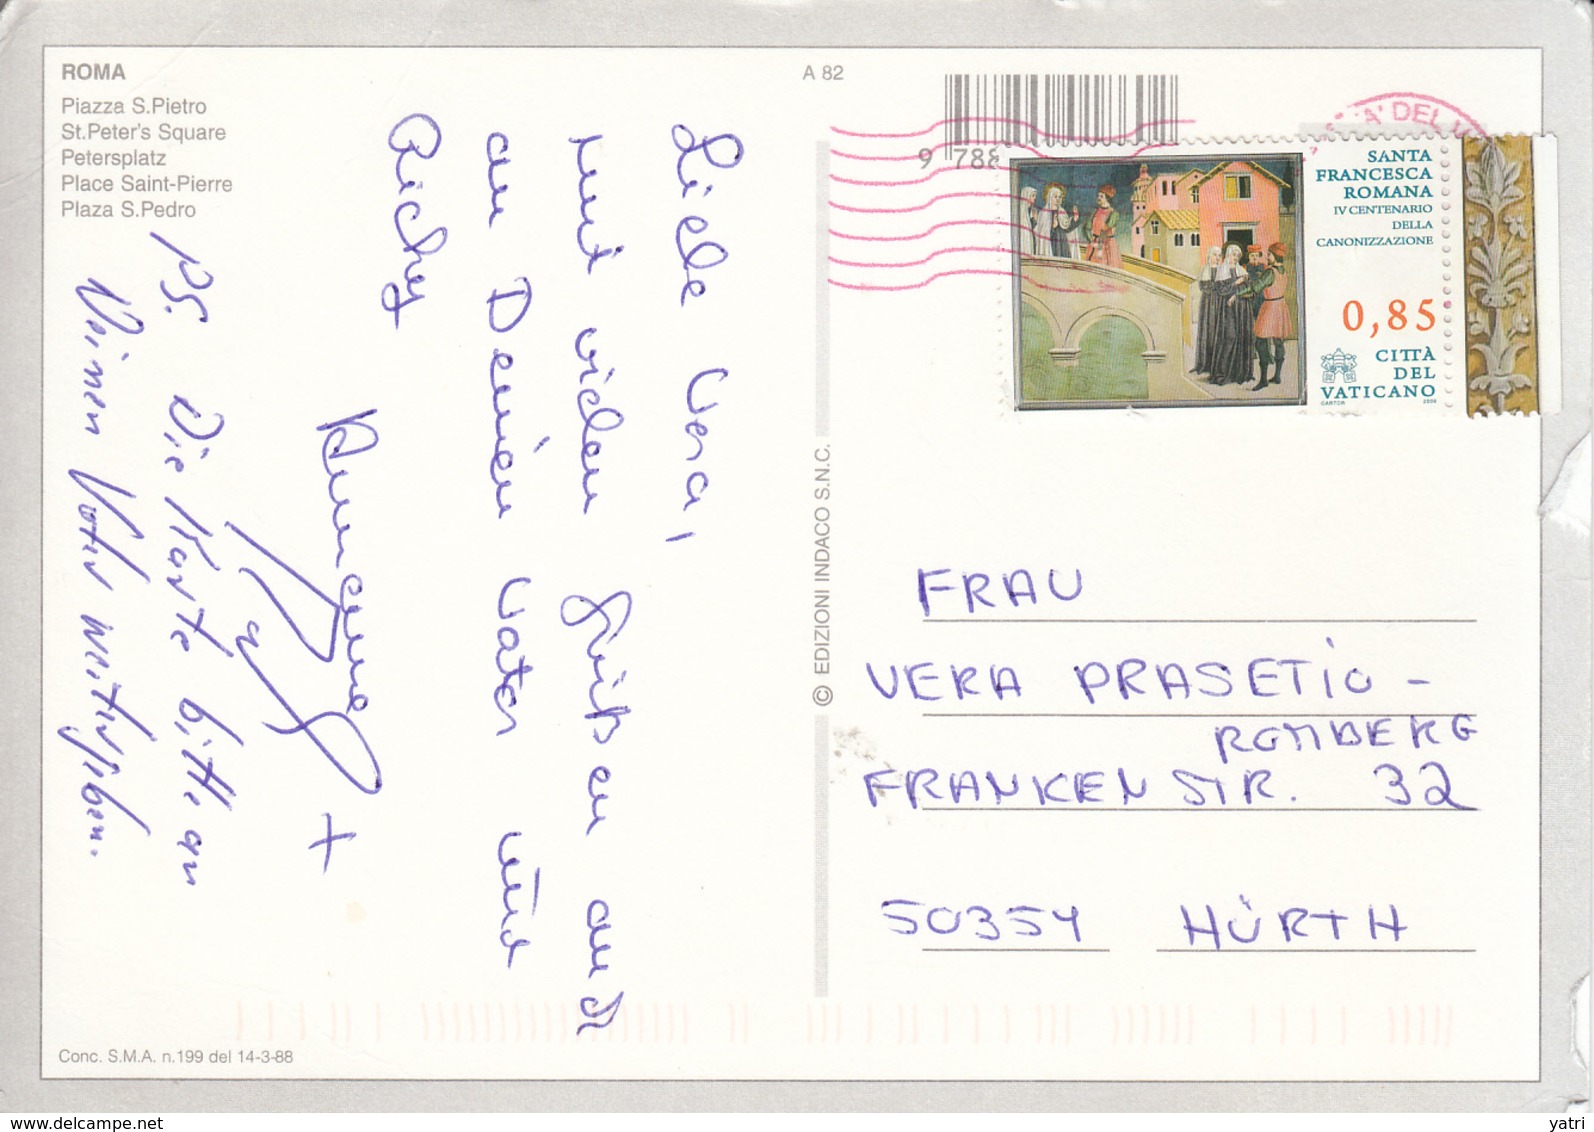 ROMA
Piazza S.Pietro
St.Peter's Square
Petersplatz
Place Saint-Pierre
Plaza S.Pedro
A 82
9 788
A' DEL V
SANTA
FRANCESCA
ROMANA
IV CENTENARIO
DELLA
CANONIZZAZIONE
0,85
CITTÀ
DEL
VATICANO
CARTOR
Liebe Vera,
mit vielen Grüßen auch
an Deinen Vater und
Richy
PS. Die Karte bitte an
Deinen Vater
© EDIZIONI INDACO S.N.C.
FRAU
VERA PRASETIO -
ROMBERG
FRANKENSTR. 32
50354 HÜRTH
Conc. S.M.A. n.199 del 14-3-88
yatri